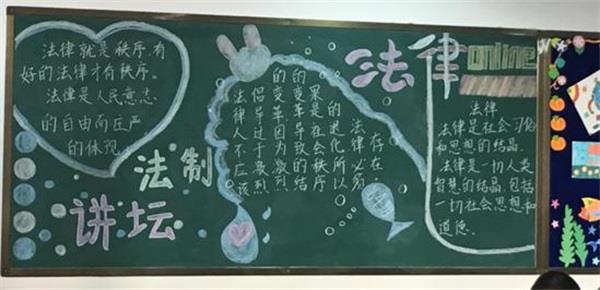 法律就是秩序,有
好的法律才有秩序。
法律是人民意志
的自由而庄严
的体现.
法制
讲坛
法律人不应该
倡导过于激烈
的变革.因为激烈
的变革导致的结
果是社会秩序
的退化所以
法律必须
存在.
法律online
法律
法律是社会习俗
和思想的结晶.
法律是一切人类
智慧的结晶,包括
一切社会思想和
道德.